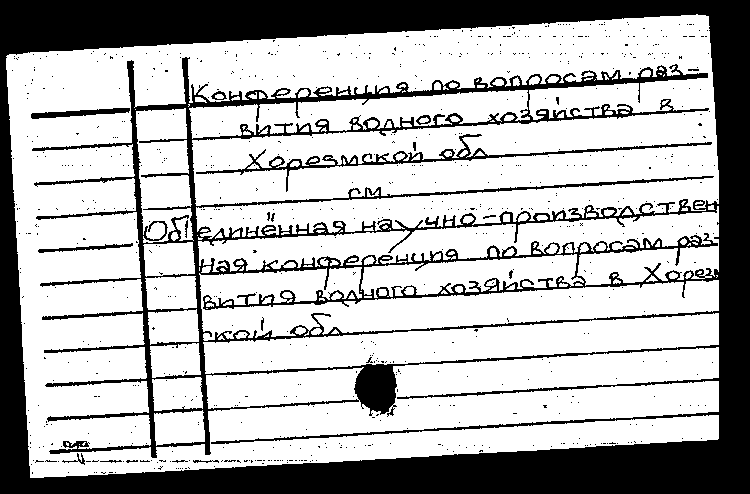 Конференция по вопросам раз-
вития водного хозяйства в
Хорезмской обл
см.
Объединённая научно-производствен
ная конференция по вопросам раз-
вития водного хозяйства в Хорезм
ской обл